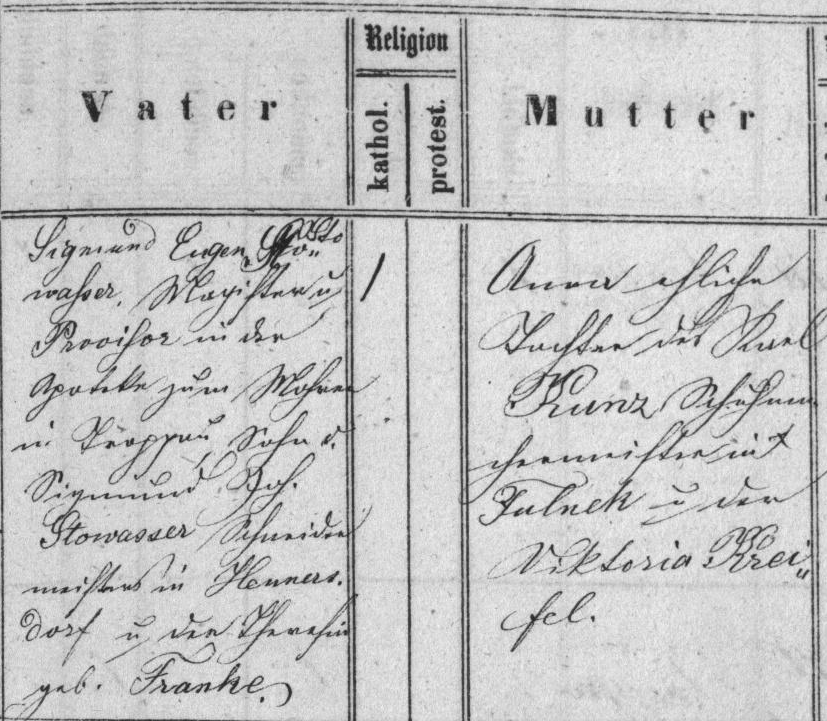 Vater
Religion
kathol.
protest.
Mutter
Sigmund Eugen Sto„
wasser, Magister u
Provisor in der
Apoteke zum Mohren
in Troppau, Sohn d.
Sigmund Joh.
Stowasser Schneider
meisters in Henners.
dorf u der Theresia
geb. Franke.
/
Anna ehliche
Tochter des Karl
Kunz Schuhma
chermeister in
Fulnek u der
Viktoria Krei„
sel.